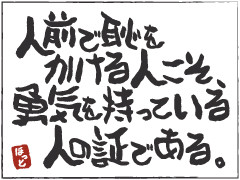 人前で恥を
かける人こそ、
勇気を持っている
人の証である。
ほっと